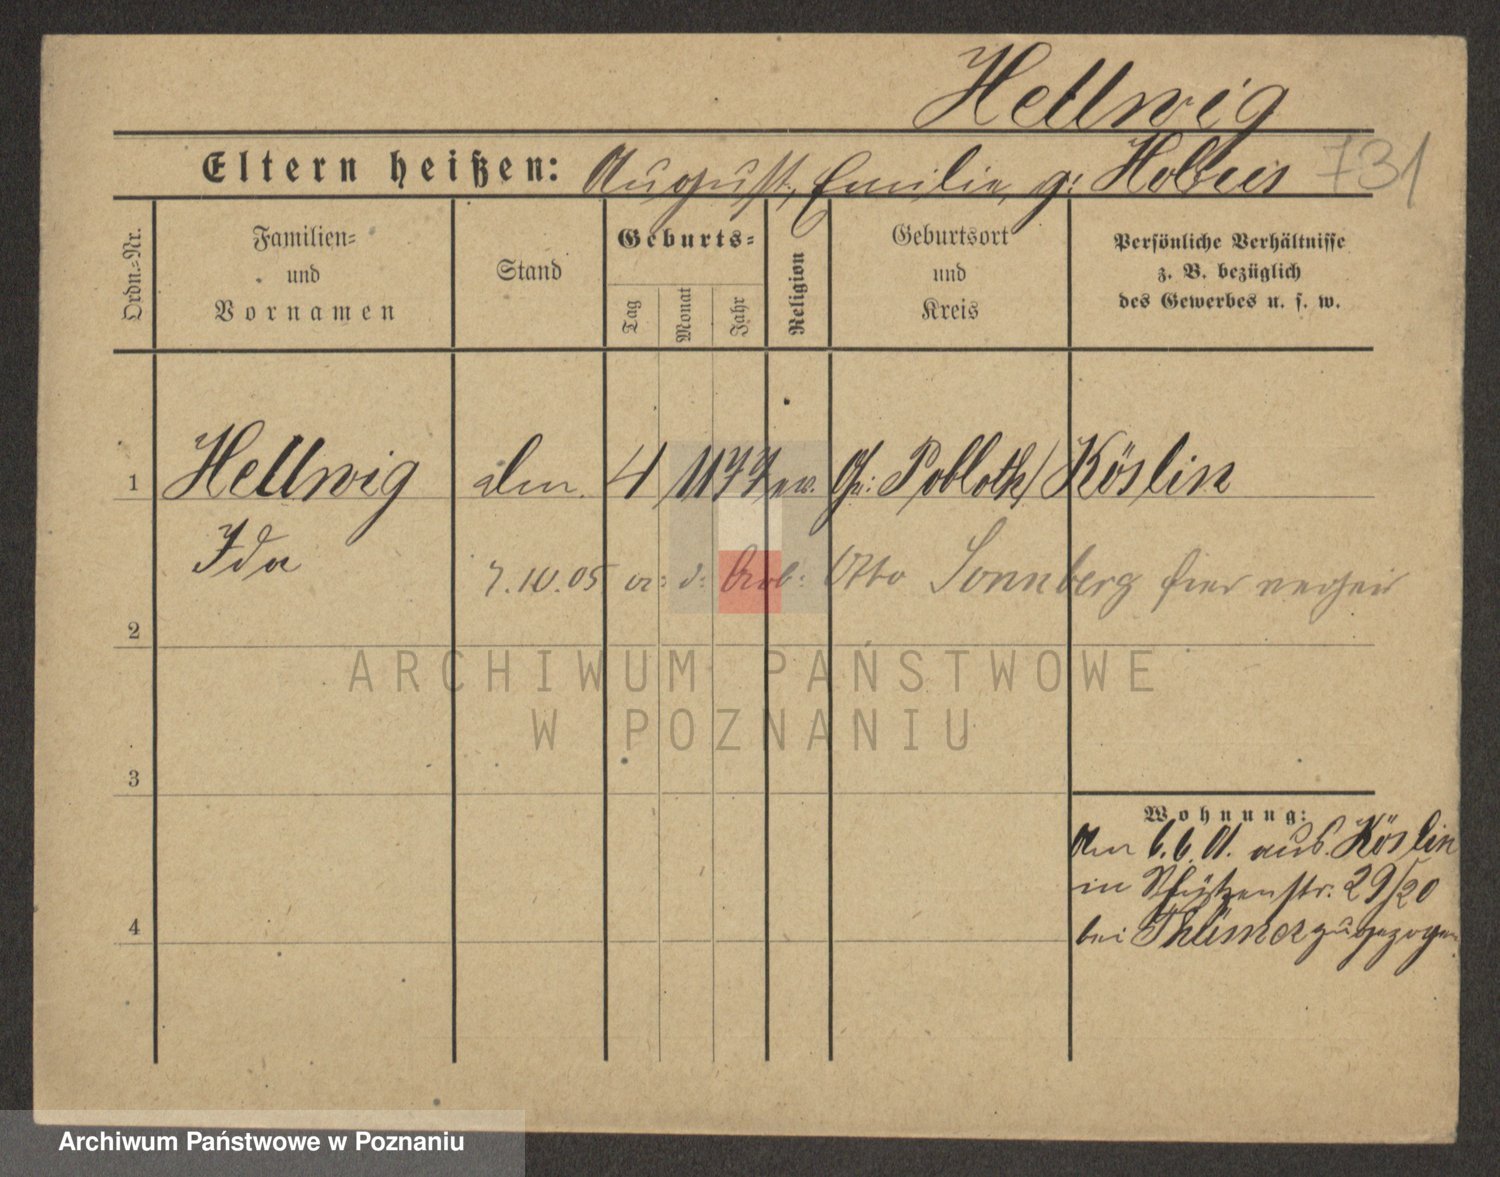 Hellwig
Eltern heißen: August, Emilie, g: 731
Ordn.-Nr.
Familien-
und
Vornamen
Stand
Geburts-
Tag
Monat
Jahr
Religion
Geburtsort
und
Kreis
Persönliche Verhältnisse
z. B. bezüglich
des Gewerbes u. s. w.
1 Hellwig 4 11 77 ev. Gr: Pobloth/ Köslin
Ida
7.10.05 Otto Sonnberg hier
2
ARCHIWUM PAŃSTWOWE
W POZNANIU
3
Wohnung:
Am 6.6.01. aus Köslin
in Schützenstr: 29/20
4
bei zugezogen
Archiwum Państwowe w Poznaniu